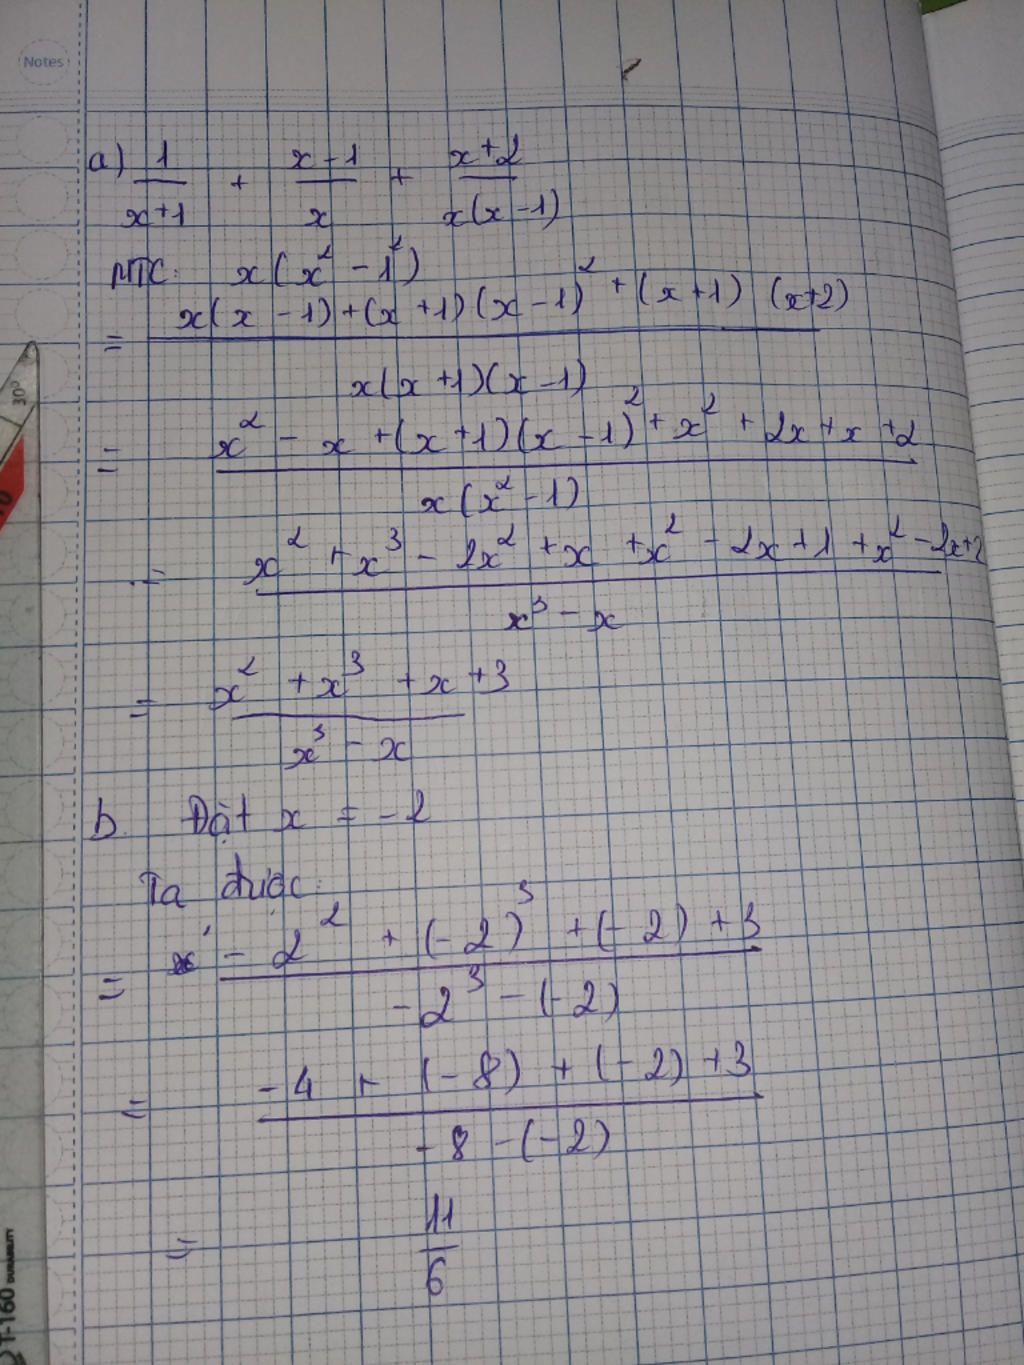 Notes
a) 1/(x+1) + (x-1)/x + (x+2)/(x(x-1))
MTC: x(x² - 1²)
= (x(x-1)+(x+1)(x-1)²+(x+1)(x+2))/(x(x+1)(x-1))
= (x² - x +(x+1)(x-1)²+x²+2x+x+2)/(x(x²-1))
= (x²+x³-2x²+x+x²-2x+1+x²-2x+2)/(x³-x)
= (x²+x³+x+3)/(x³-x)
b. Đặt x = -2
Ta được:
= (-2²+(-2)³+(-2)+3)/(-2³-(-2))
= (-4+(-8)+(-2)+3)/(-8-(-2))
= 11/6
30°
T-160 DURABILITY